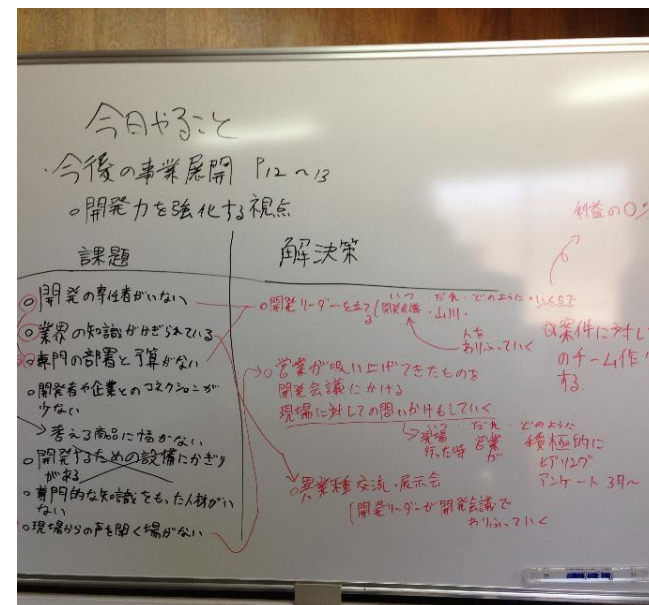 今日やること
・今後の事業展開 P12~13
○開発力を強化する視点
課題
○開発の専任者がいない
○業界の知識がかぎられている
○専門の部署と予算がない
○開発者や企業とのコネクションが
少ない
→考える商品に幅がない
○開発するための設備にかぎり
がある
○専門的な知識をもった人材がい
ない
○現場からの声を聞く場がない
解決策
いつ・だれ・どのように・いくらで
○開発リーダーを立て(開発会議・山川・
る
人を
わりふっていく
○営業が吸い上げてきたものを
開発会議にかける
現場に対しての問いかけもしていく
いつ だれ どのように
→現場 営業 積極的に
行った時 が ヒアリング
アンケート 3月~
○異業種交流・展示会
(開発リーダーが開発会議で
わりふっていく
利益の○%
案件に対し
のチーム作り
する